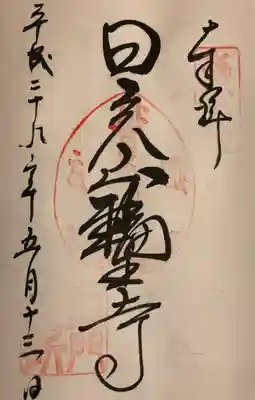 奉拝
日光山輪王寺
平成二十九年五月十三日